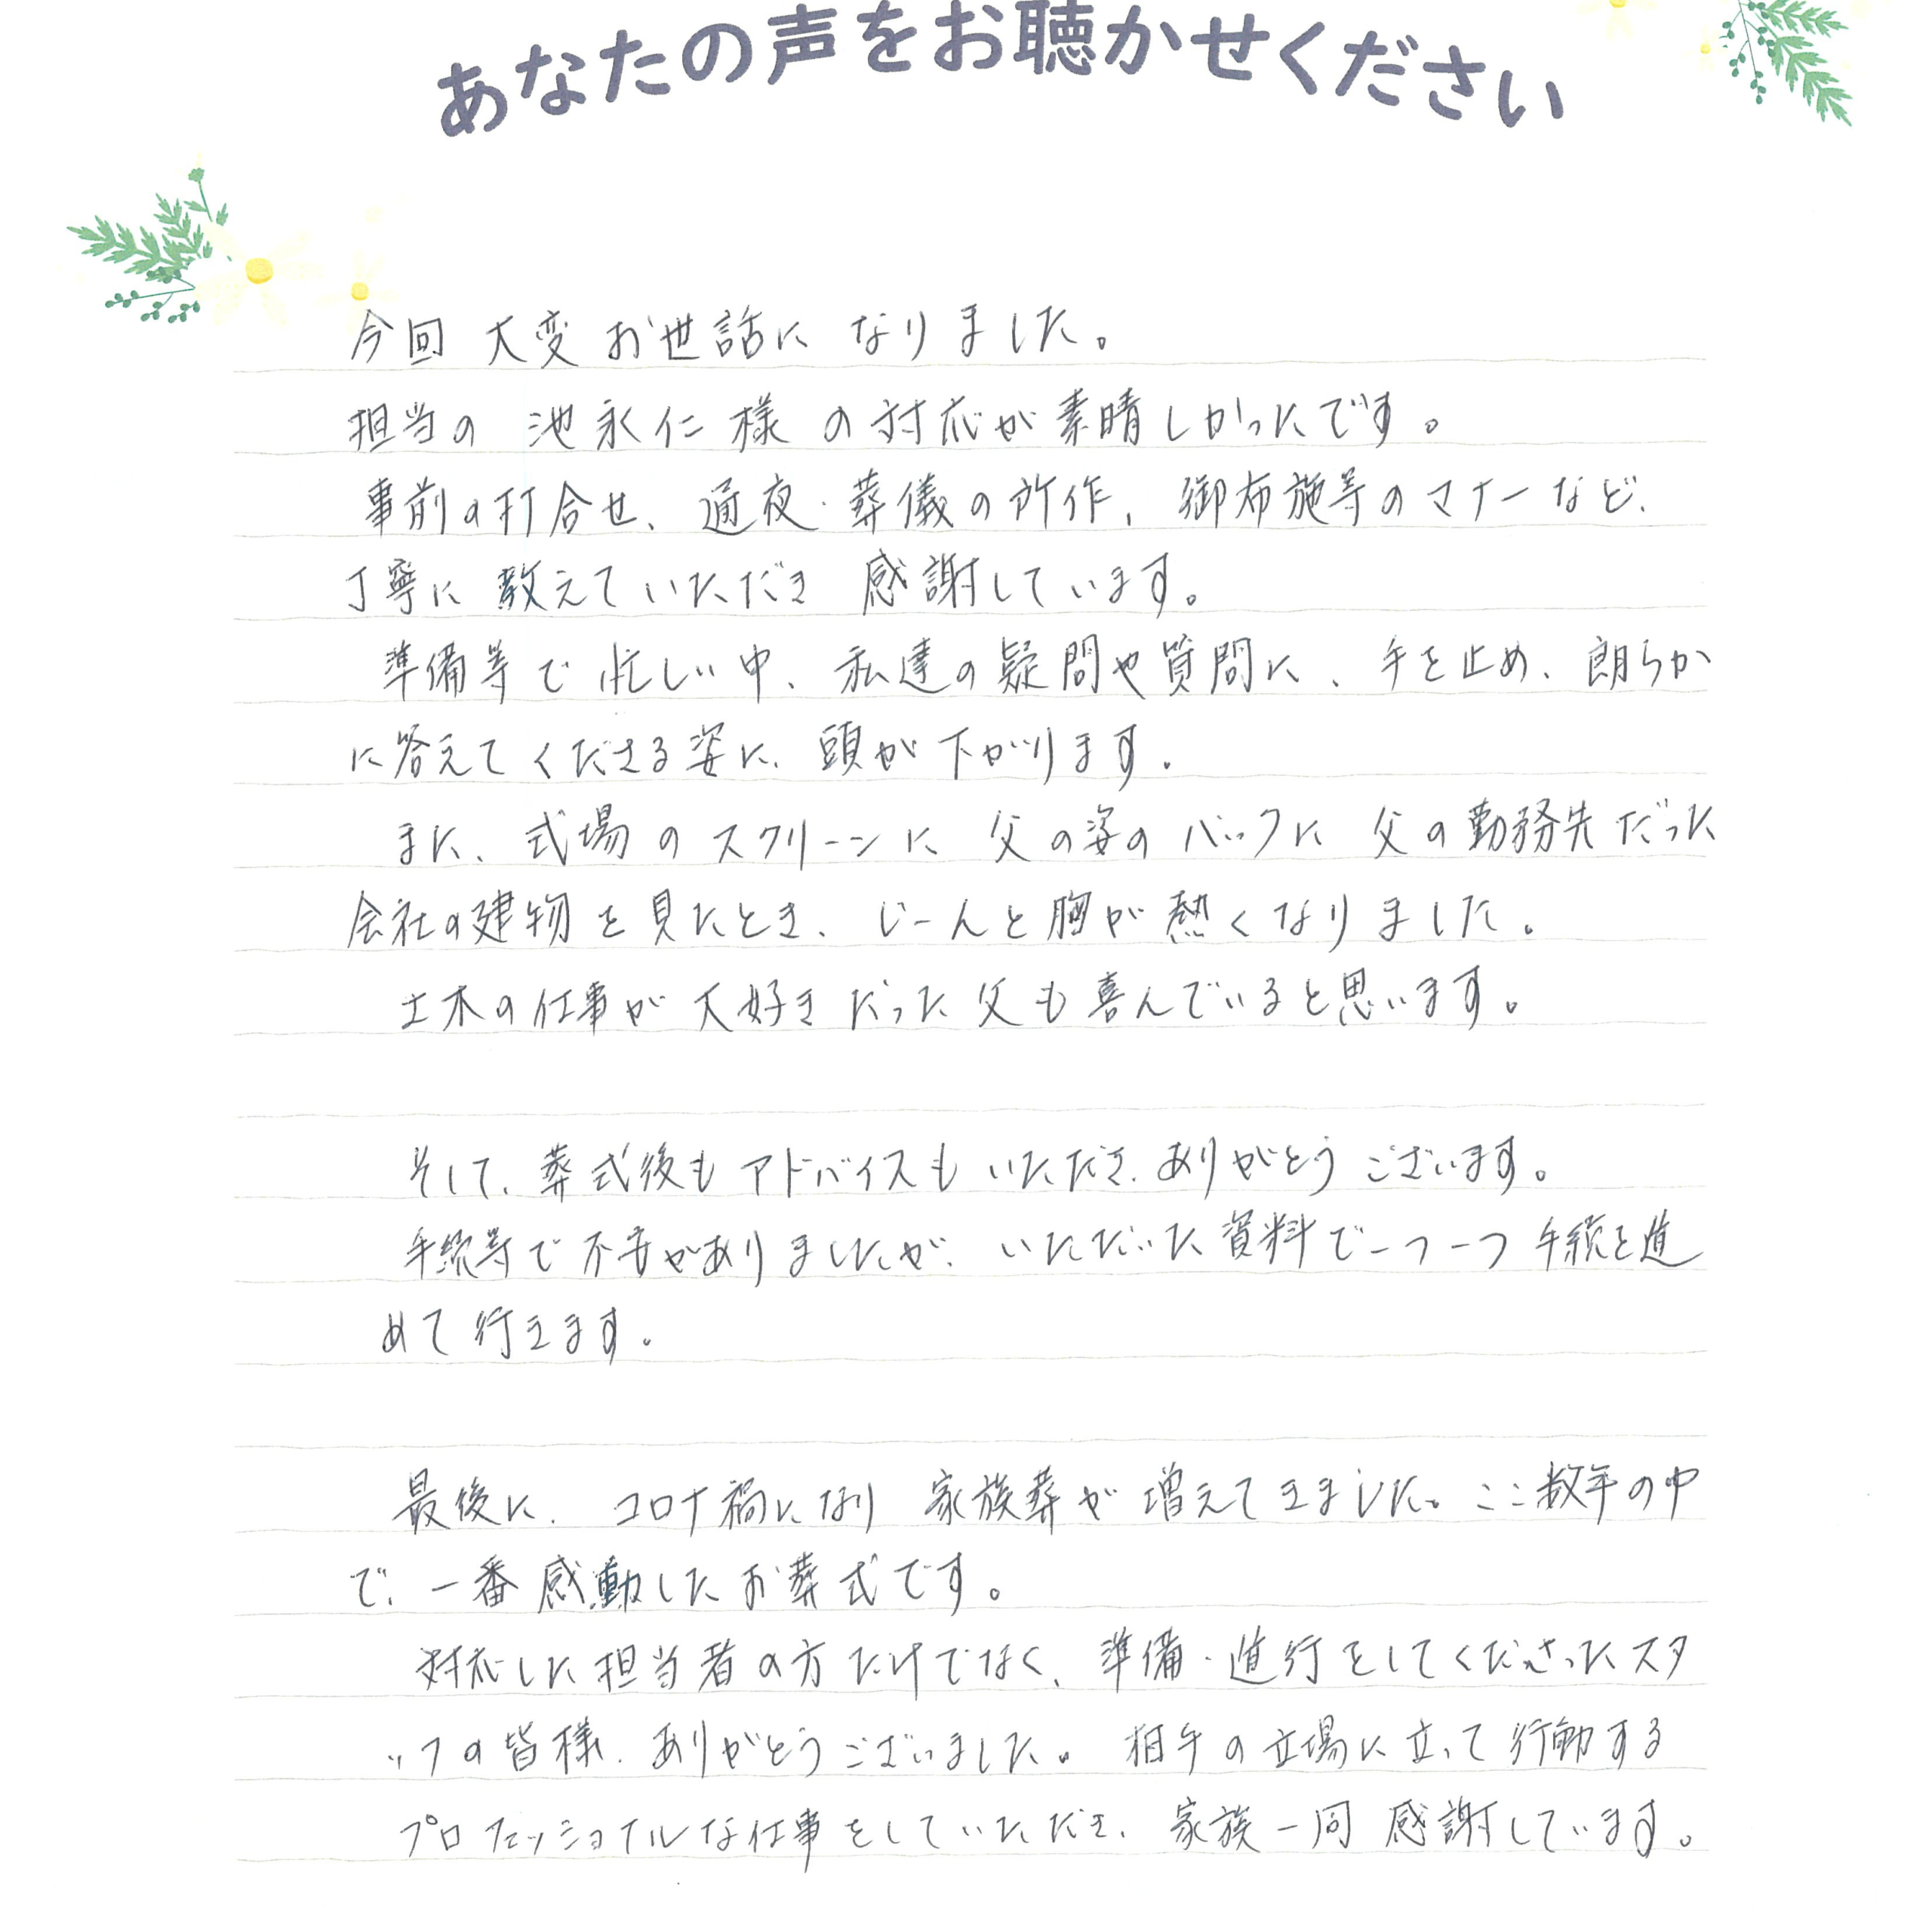 あなたの声をお聴かせください
今回 大変 お世話に なりました。
担当の 池永仁様 の対応が素晴しかったです。
事前の打合せ、通夜・葬儀の所作、御布施等のマナーなど、
丁寧に 教えていただき 感謝しています。
準備等で忙しい中、私達の疑問や質問に、手を止め、朗らか
に答えてくださる姿に、頭が下がります。
また、式場のスクリーンに 父の姿のバックに 父の勤務先だった
会社の建物を見たとき、じーんと胸が熱くなりました。
土木の仕事が大好きだった父も喜んでいると思います。
そして、葬式後もアドバイスもいただき、ありがとうございます。
手続等で不安がありましたが、いただいた資料で一つ一つ手続を進
めて行きます。
最後に、コロナ禍になり 家族葬が増えてきました。ここ数年の中
で、一番感動したお葬式です。
対応した担当者の方だけでなく、準備・進行をしてくださったスタ
ッフの皆様、ありがとうございました。相手の立場に立って行動する
プロフェッショナルな仕事をしていただき、家族一同 感謝しています。